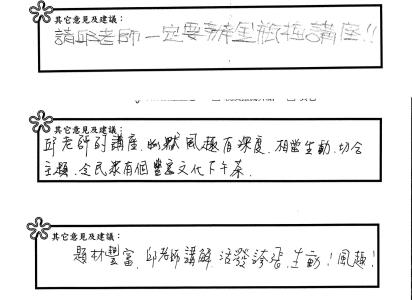 其它意見及建議：
請邱老師一定要來這種講座!!
其它意見及建議：
邱老師的講座，幽默風趣有深度，相當生動，切合
主題，令民眾有個豐富文化下午茶．
其它意見及建議：
題材豐富，邱老師講解，活潑誇張，生動！風趣！